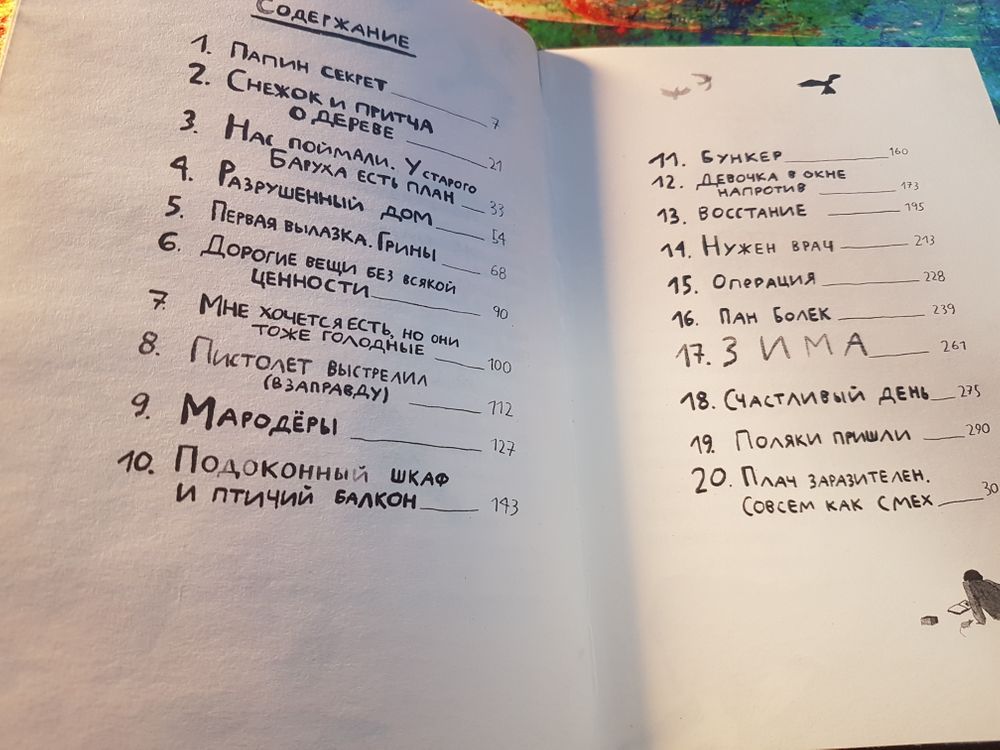 Содержание
1. Папин секрет 7
2. Снежок и притча
о дереве 21
3. Нас поймали. У старого
Баруха есть план 33
4. Разрушенный дом 54
5. Первая вылазка. Грины 68
6. Дорогие вещи без всякой
ценности 90
7. Мне хочется есть, но они
тоже голодные 100
8. Пистолет выстрелил
(взаправду) 112
9. Мародёры 127
10. Подоконный шкаф
и птичий балкон 143
11. Бункер 160
12. Девочка в окне
напротив 173
13. Восстание 195
14. Нужен врач 213
15. Операция 228
16. Пан Болек 239
17. Зима 261
18. Счастливый день 275
19. Поляки пришли 290
20. Плач заразителен.
Совсем как смех